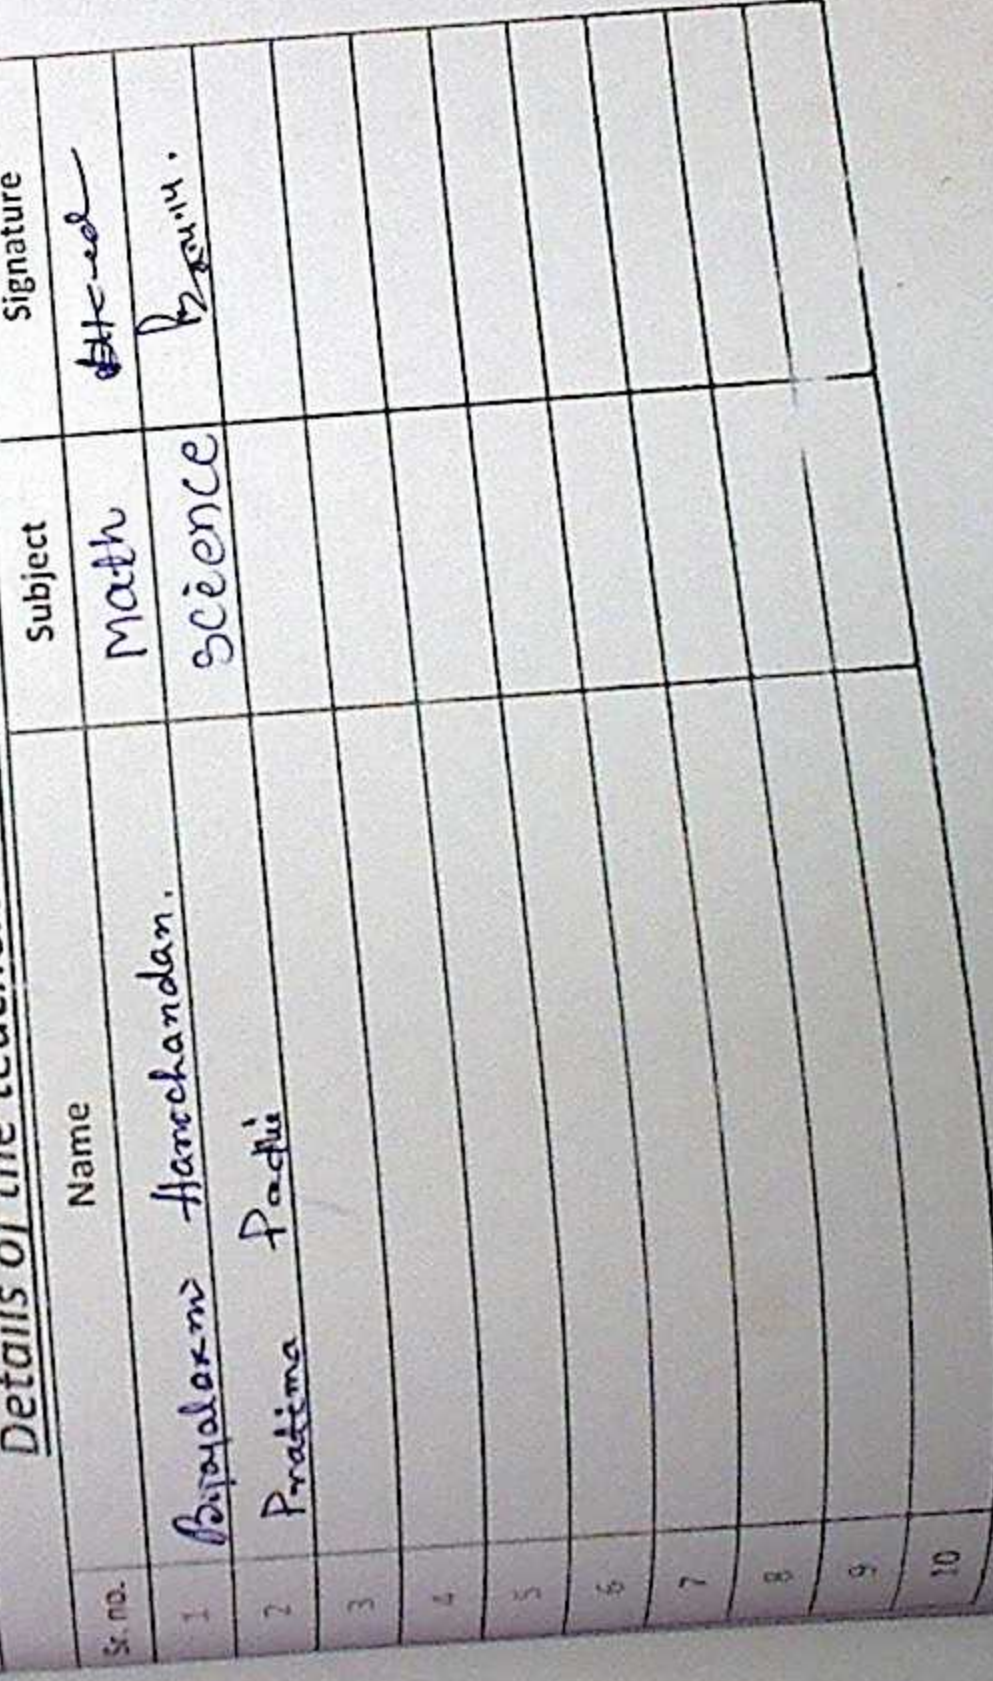 Details of the
Sr. no. Name Subject Signature
1 Bijayalaxmi Harichandan. Math
2 Pratima Padhi Science
3
4
5
6
7
8
9
10